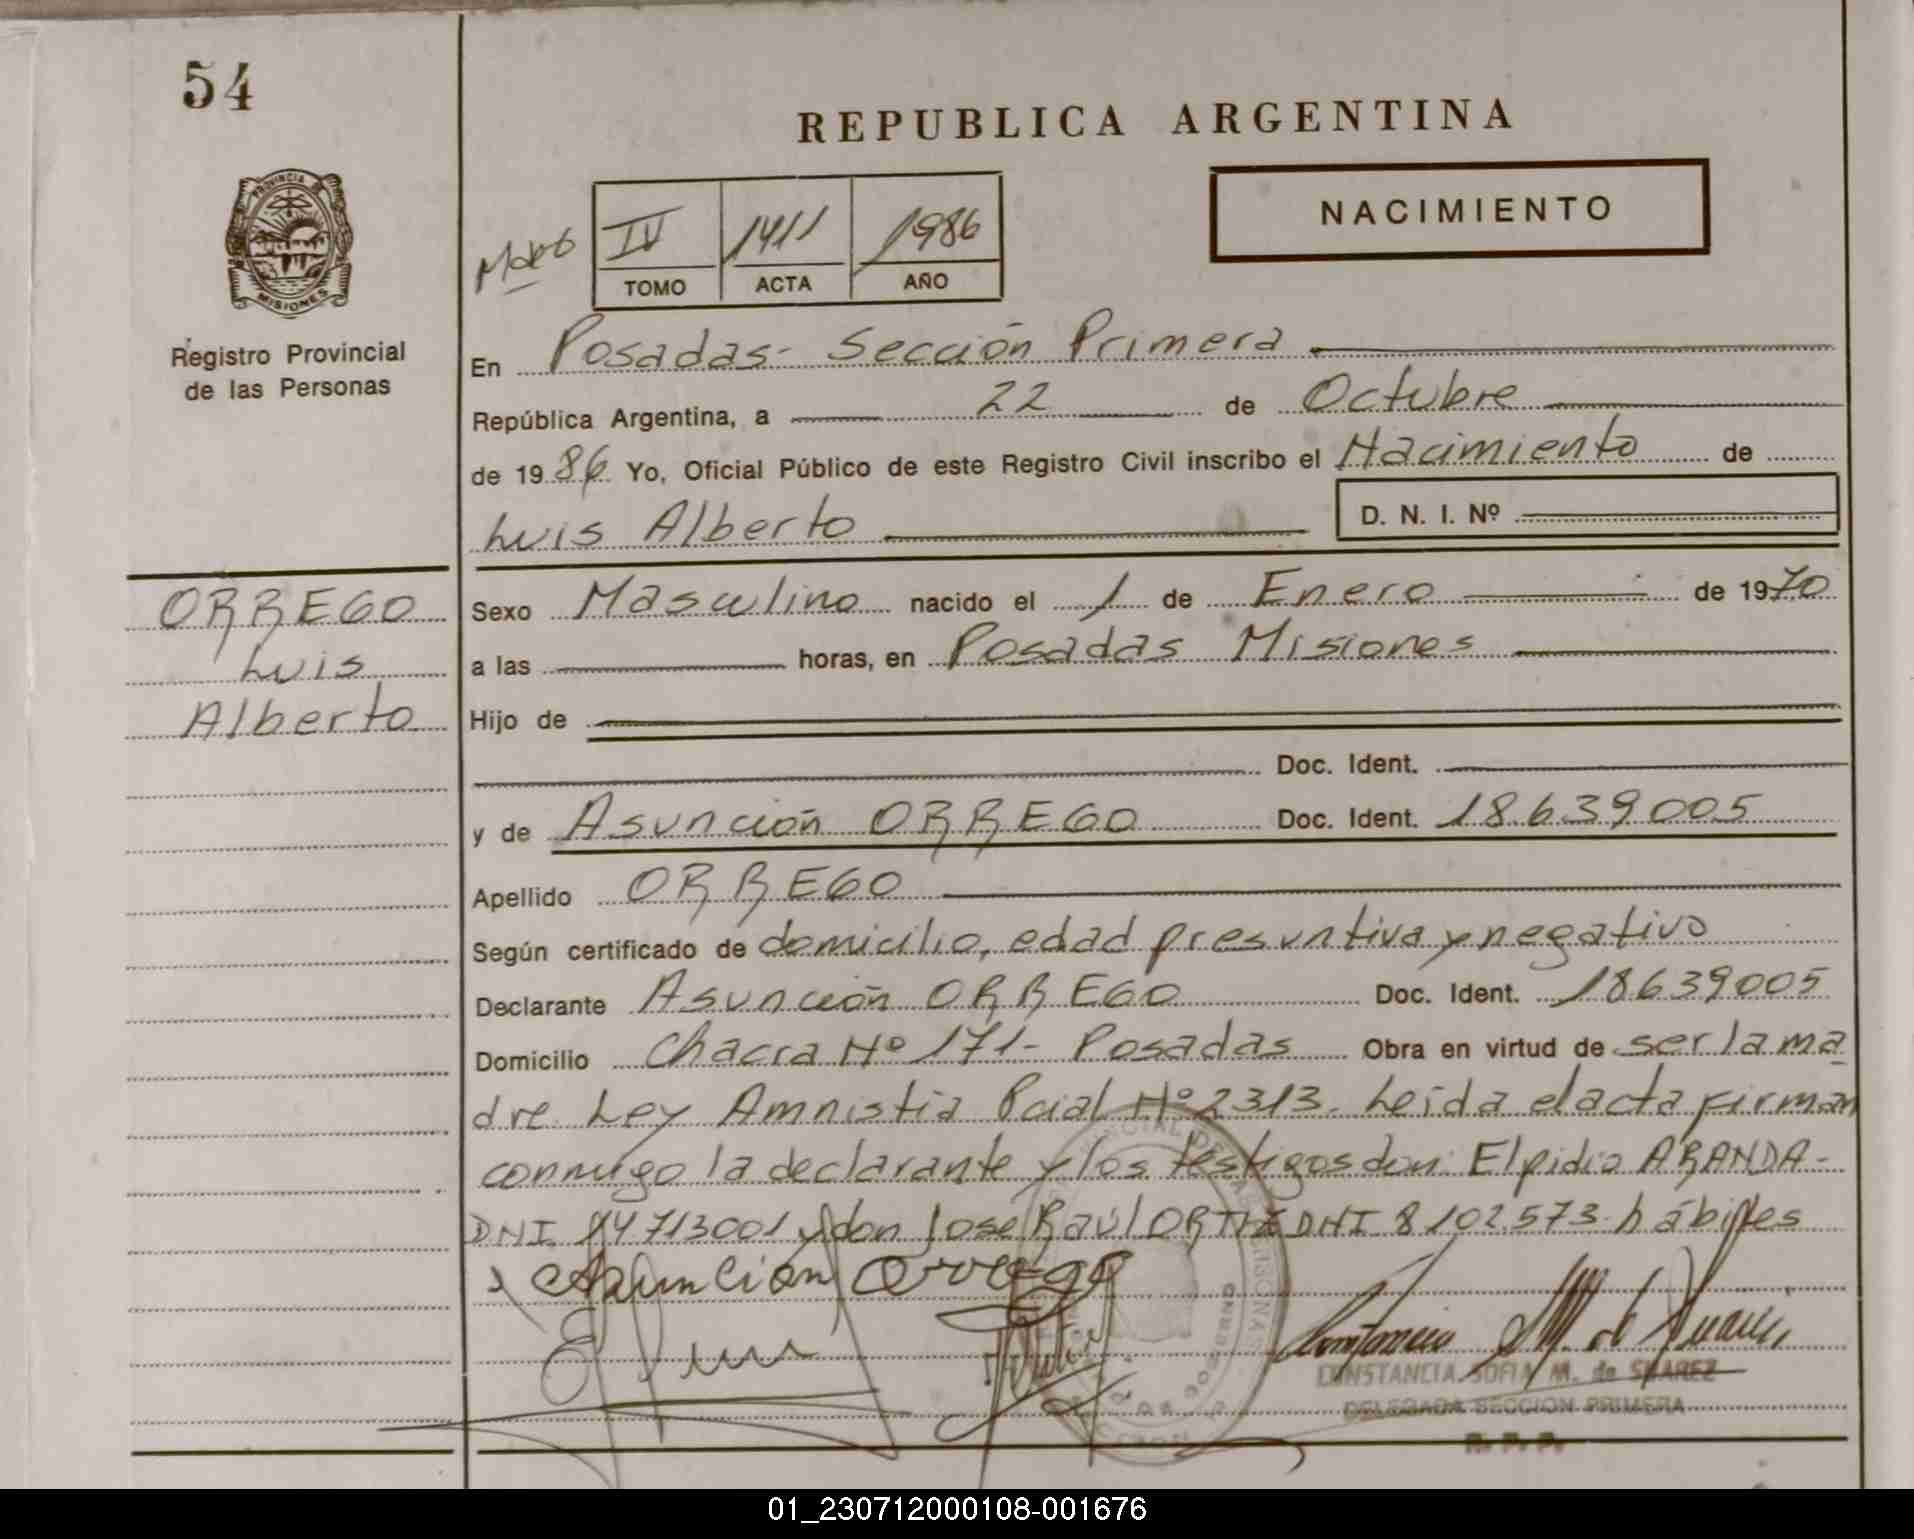 54
REPUBLICA ARGENTINA
PROVINCIA DE
MISIONES
NACIMIENTO
IV 1411 1986
TOMO ACTA AÑO
Registro Provincial
de las Personas
En Posadas- Sección Primera
República Argentina, a 22 de Octubre
de 1986 Yo, Oficial Público de este Registro Civil inscribo el Nacimiento de
Luis Alberto D. N. I. Nº
ORREGO
Luis
Alberto
Sexo Masculino nacido el 1 de Enero de 1970
a las horas, en Posadas Misiones
Hijo de
Doc. Ident.
y de Asunción ORREGO Doc. Ident. 18.639005
Apellido ORREGO
Según certificado de domicilio, edad presuntiva y negativo
Declarante Asunción ORREGO Doc. Ident. 18639005
Domicilio Chacra Nº 171- Posadas Obra en virtud de ser la ma
dre Ley Amnistia Pcial Nº 2313. Leída el acta firman
conmigo la declarante y los testigos don: Elpidio ARANDA-
DNI 14713001 y don José Raúl ORTIZ DNI 8102.573 hábiles
Asuncion Orrego
CONSTANCIA SOFIA M. de SUAREZ
DELEGADA SECCION PRIMERA
R. P. P.
01_230712000108-001676